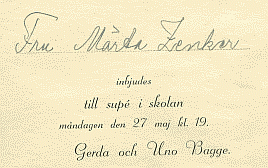 Fru Märta Zenker
inbjudes
till supé i skolan
måndagen den 27 maj kl. 19.
Gerda och Uno Bagge.